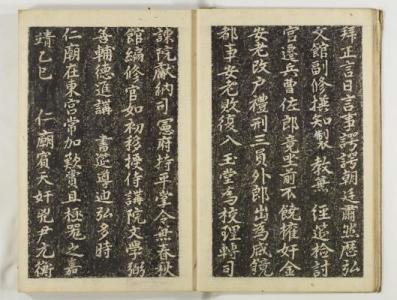 拜正言日言事諤諤朝廷肅然歷弘
文館副修撰知製 敎兼 經筵檢討
官遷兵曹佐郎竟坐前不饒權奸金
安老改戶禮刑三員外郎出爲咸鏡
都事安老敗復入玉堂爲校理轉司
諫院獻納司憲府持平掌令兼春秋
館編修官如初移授侍講院文學弼
善輔德進講 書筵導迪弘多時
仁廟在東宮常加歎賞且極寵之嘉
靖乙巳 仁廟賓天奸兇尹元衡